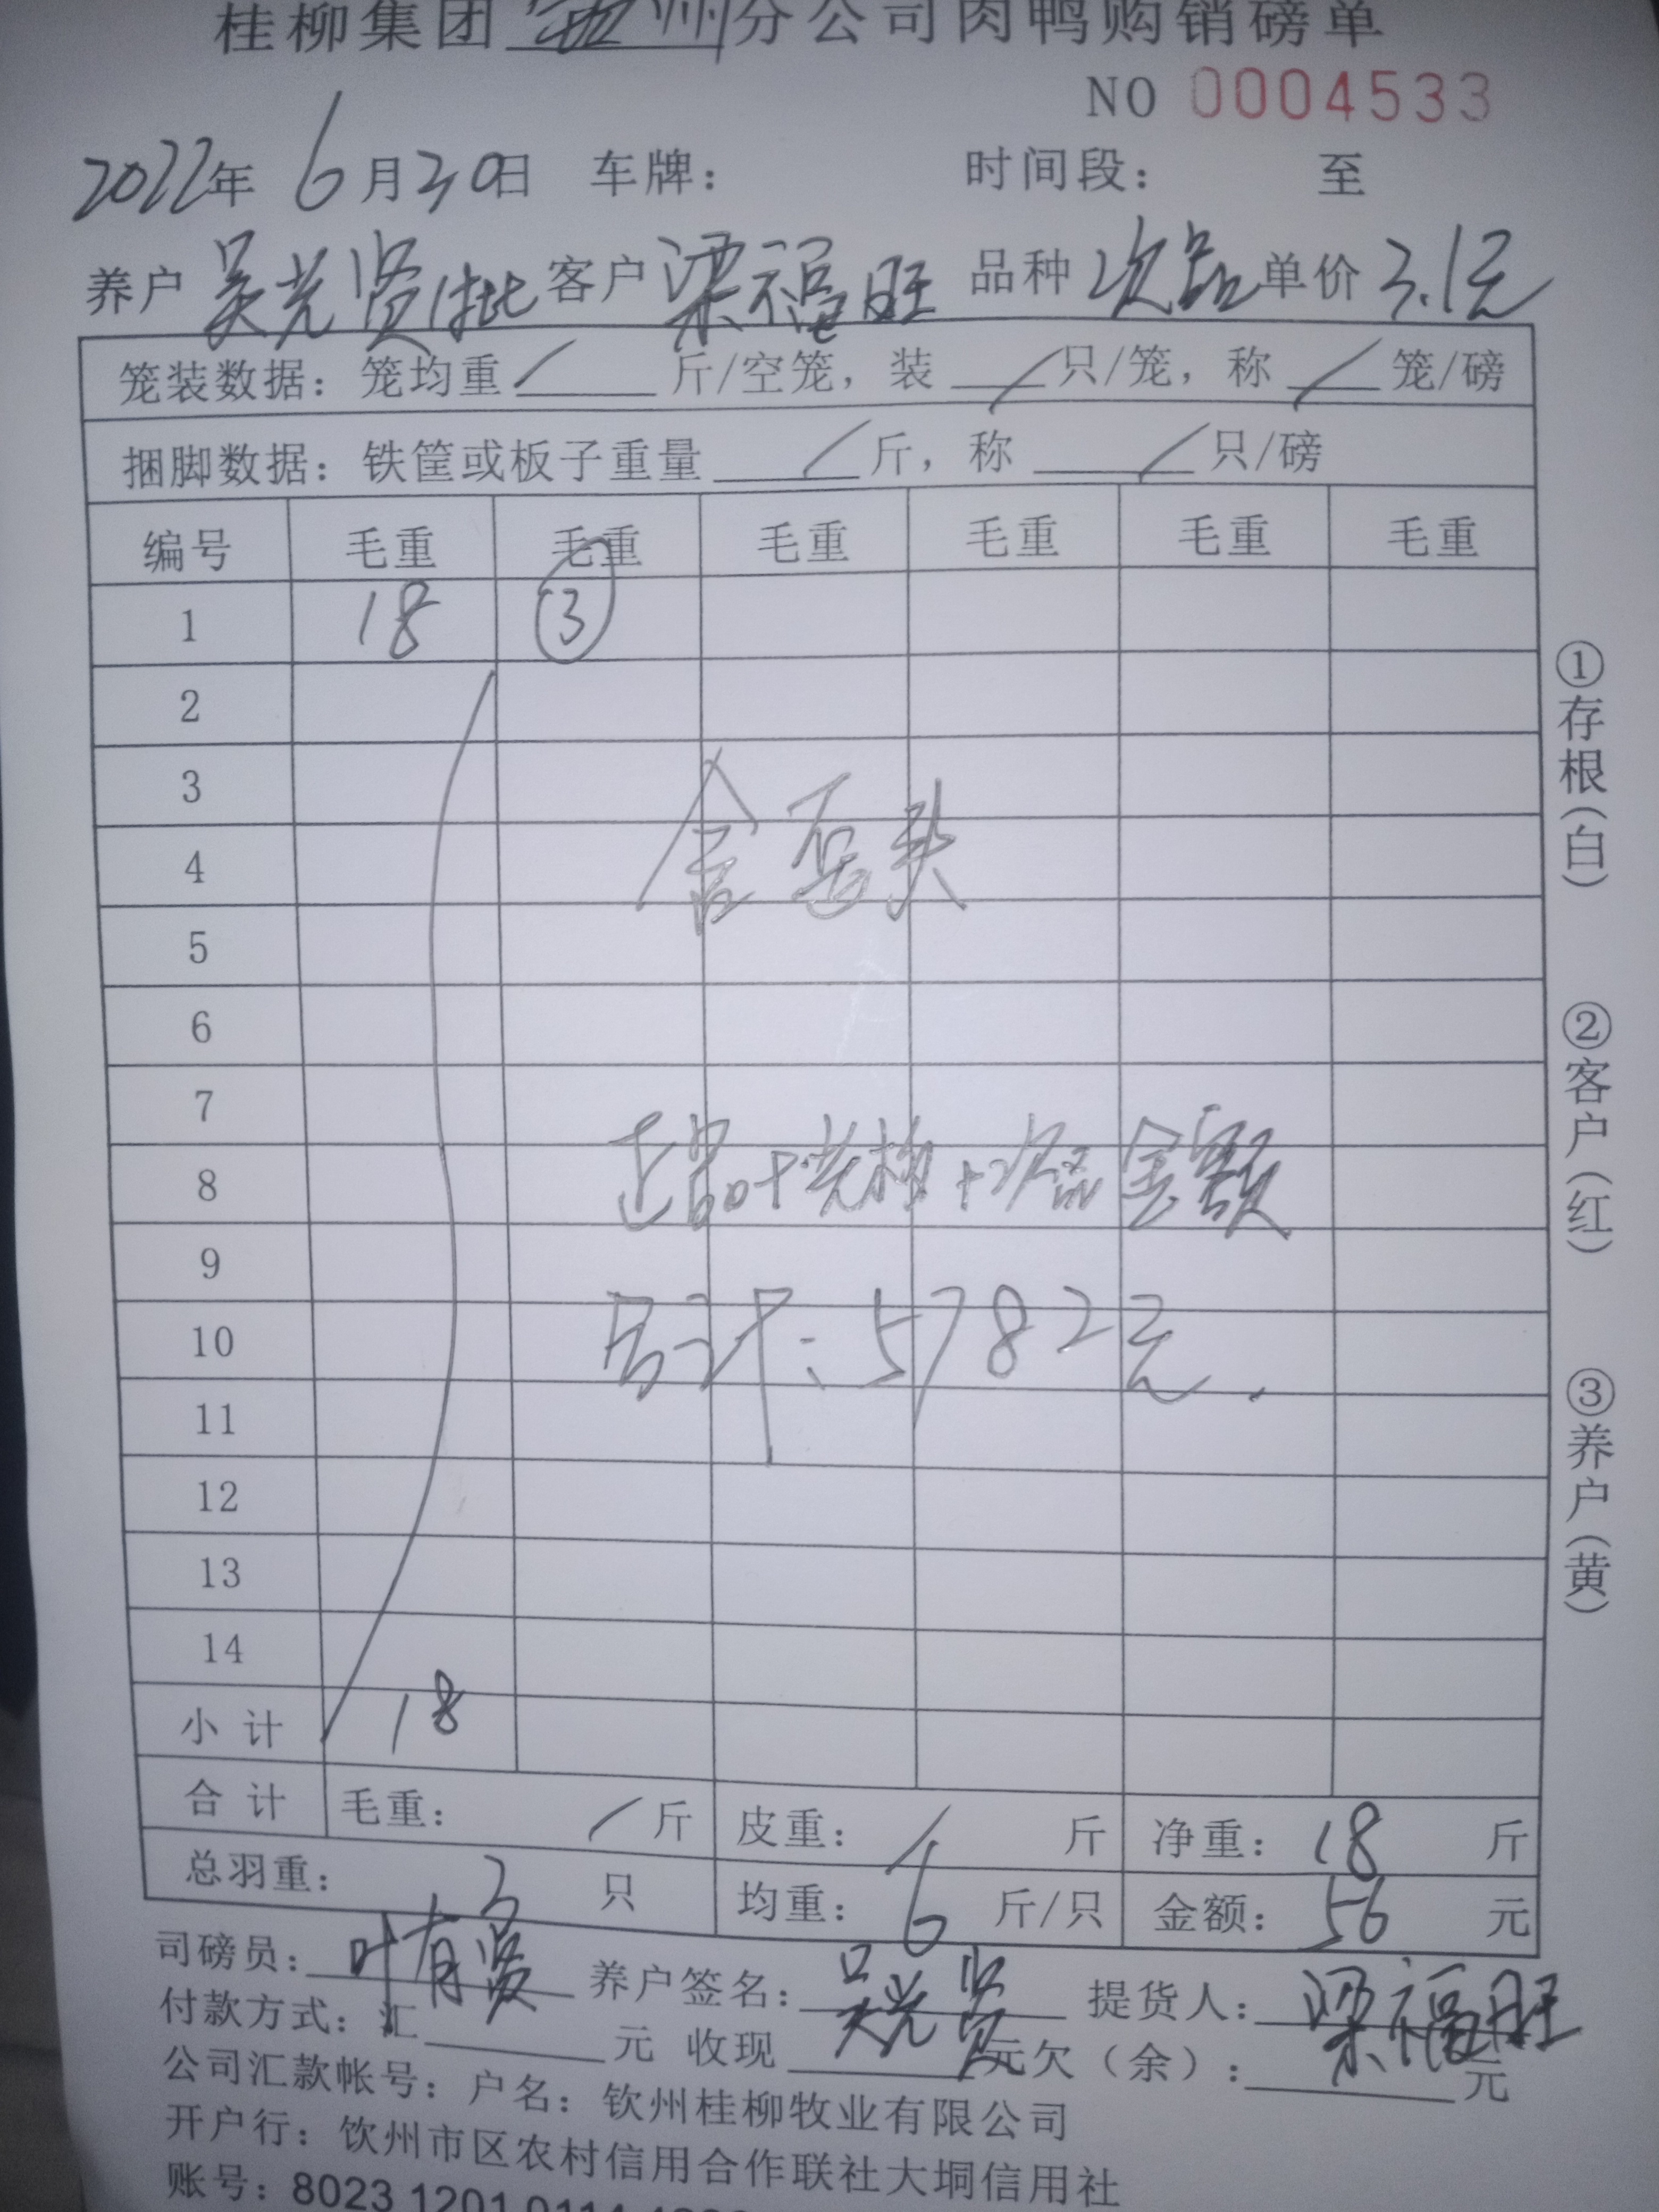 桂柳集团 钦州分公司肉鸭购销磅单
NO 0004533
2022年 6月30日 车牌： 时间段： 至
养户 吴光贤1批 客户 梁福旺 品种 次品 单价 3.1元
笼装数据：笼均重 / 斤/空笼，装 / 只/笼，称 / 笼/磅
捆脚数据：铁筐或板子重量 / 斤，称 / 只/磅
编号 毛重 毛重 毛重 毛重 毛重 毛重
1 18 ③
2
3
4
5
6
7
8 正品+光柳+次品金额
9
10 合计：5782元.
11
12
13
14
小计 18
合计 毛重： / 斤 皮重： / 斤 净重：18 斤
总羽重： 3 只 均重：6 斤/只 金额：56 元
司磅员：叶有 养户签名：吴光贤 提货人：梁福旺
付款方式：汇 元 收现 元欠（余）： 元
公司汇款帐号：户名：钦州桂柳牧业有限公司
开户行：钦州市区农村信用合作联社大垌信用社
账号：8023 1201 0114
①存根（白）
②客户（红）
③养户（黄）